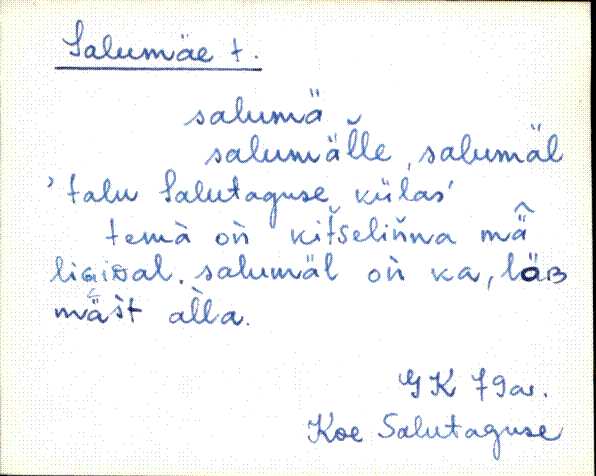 Salumäe t.
salumä
salumäl̆le, salumäl
'talu Salutaguse külas'
temà òǹ kit̆šeliňna mä̂
ligidal. salumäl òǹ ka, lä̀ʙ
mä̀s̀t al̀la.
GK 79a.
Koe Salutaguse